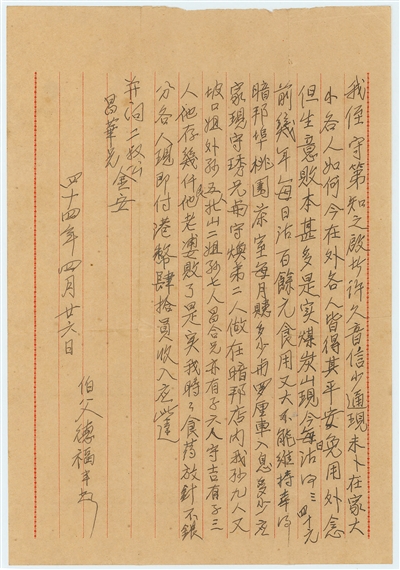 我侄守第知之啟者許久音信少通現未卜在家大
小各人如何今在外各人皆得其平安免用外念
但生意敗本甚多是實煤炭山現今每日沽三四十元
前幾年每日沽百餘元食用又大不能維持幸得
暗邦埠桃園茶室每月賺多少兩四厘車入息多少应
家現守琇兄弟守煥弟二人做在暗邦店內我孫九人又
坡口姐外孫五民山二姐孫七人昌合兄亦有子六人守吉有子三
人他存幾件他老婆敗了是實我時時食药放針不銀
分各人現即付港幣肆拾員收入应些遠
並问二叔公金安
昌華兄
四十四年四月廿六日
伯父德福字起